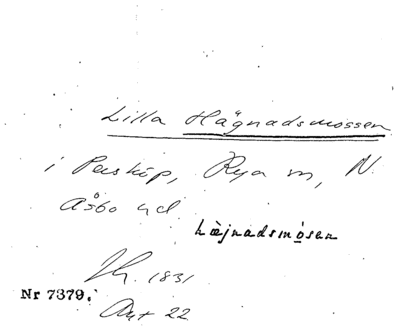 Lilla Hägnadsmossen
i Perstorp, Rya sn, N.
Åsbo hd.
hæjnadsmosen
1831
Nr 7379.
22